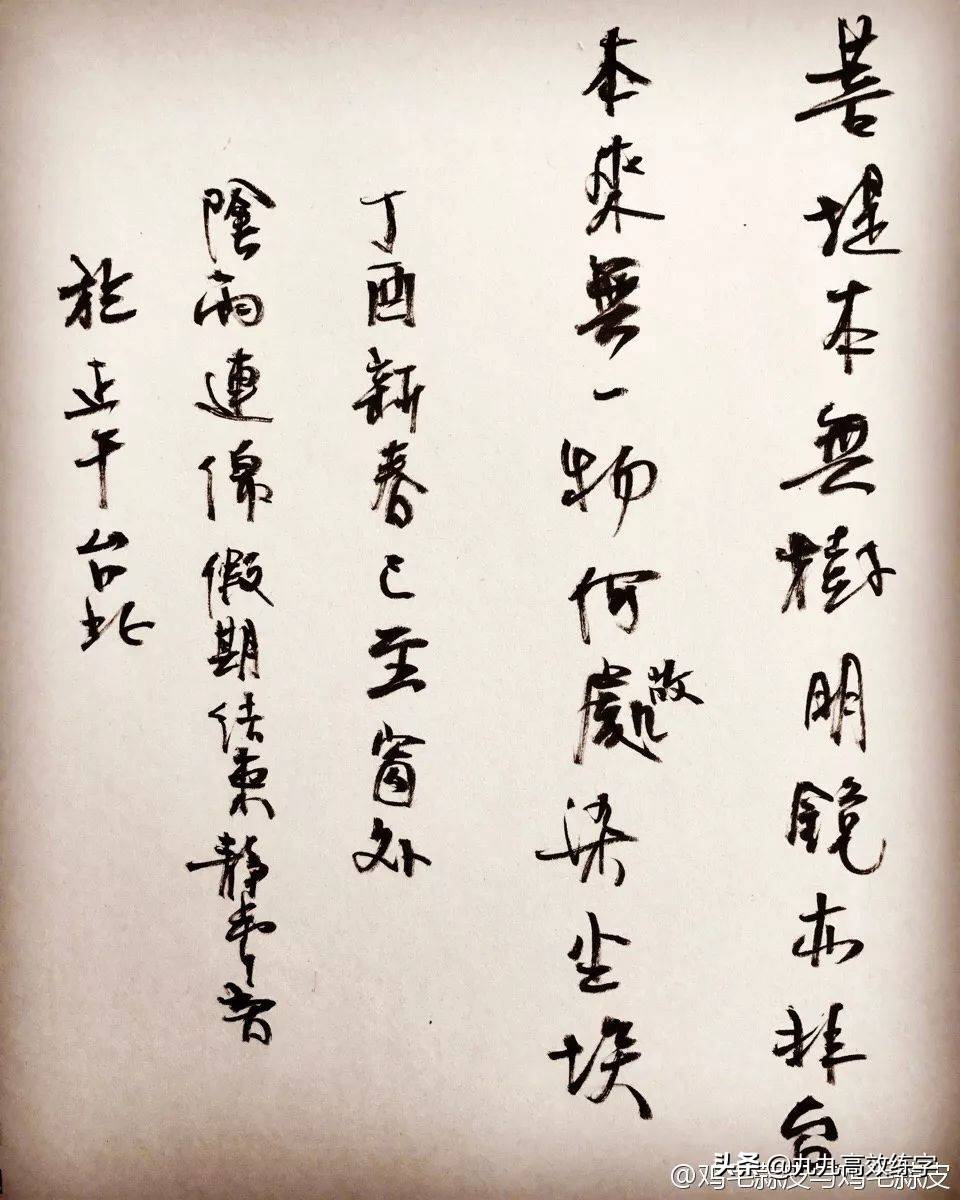 菩提本無樹明鏡亦非台
本來無一物何處故染尘埃
丁酉新春已至窗外
陰雨連綿假期结束静
於正午台北
头条 @九九高效练字
@鸡毛蒜皮与鸡毛蒜皮